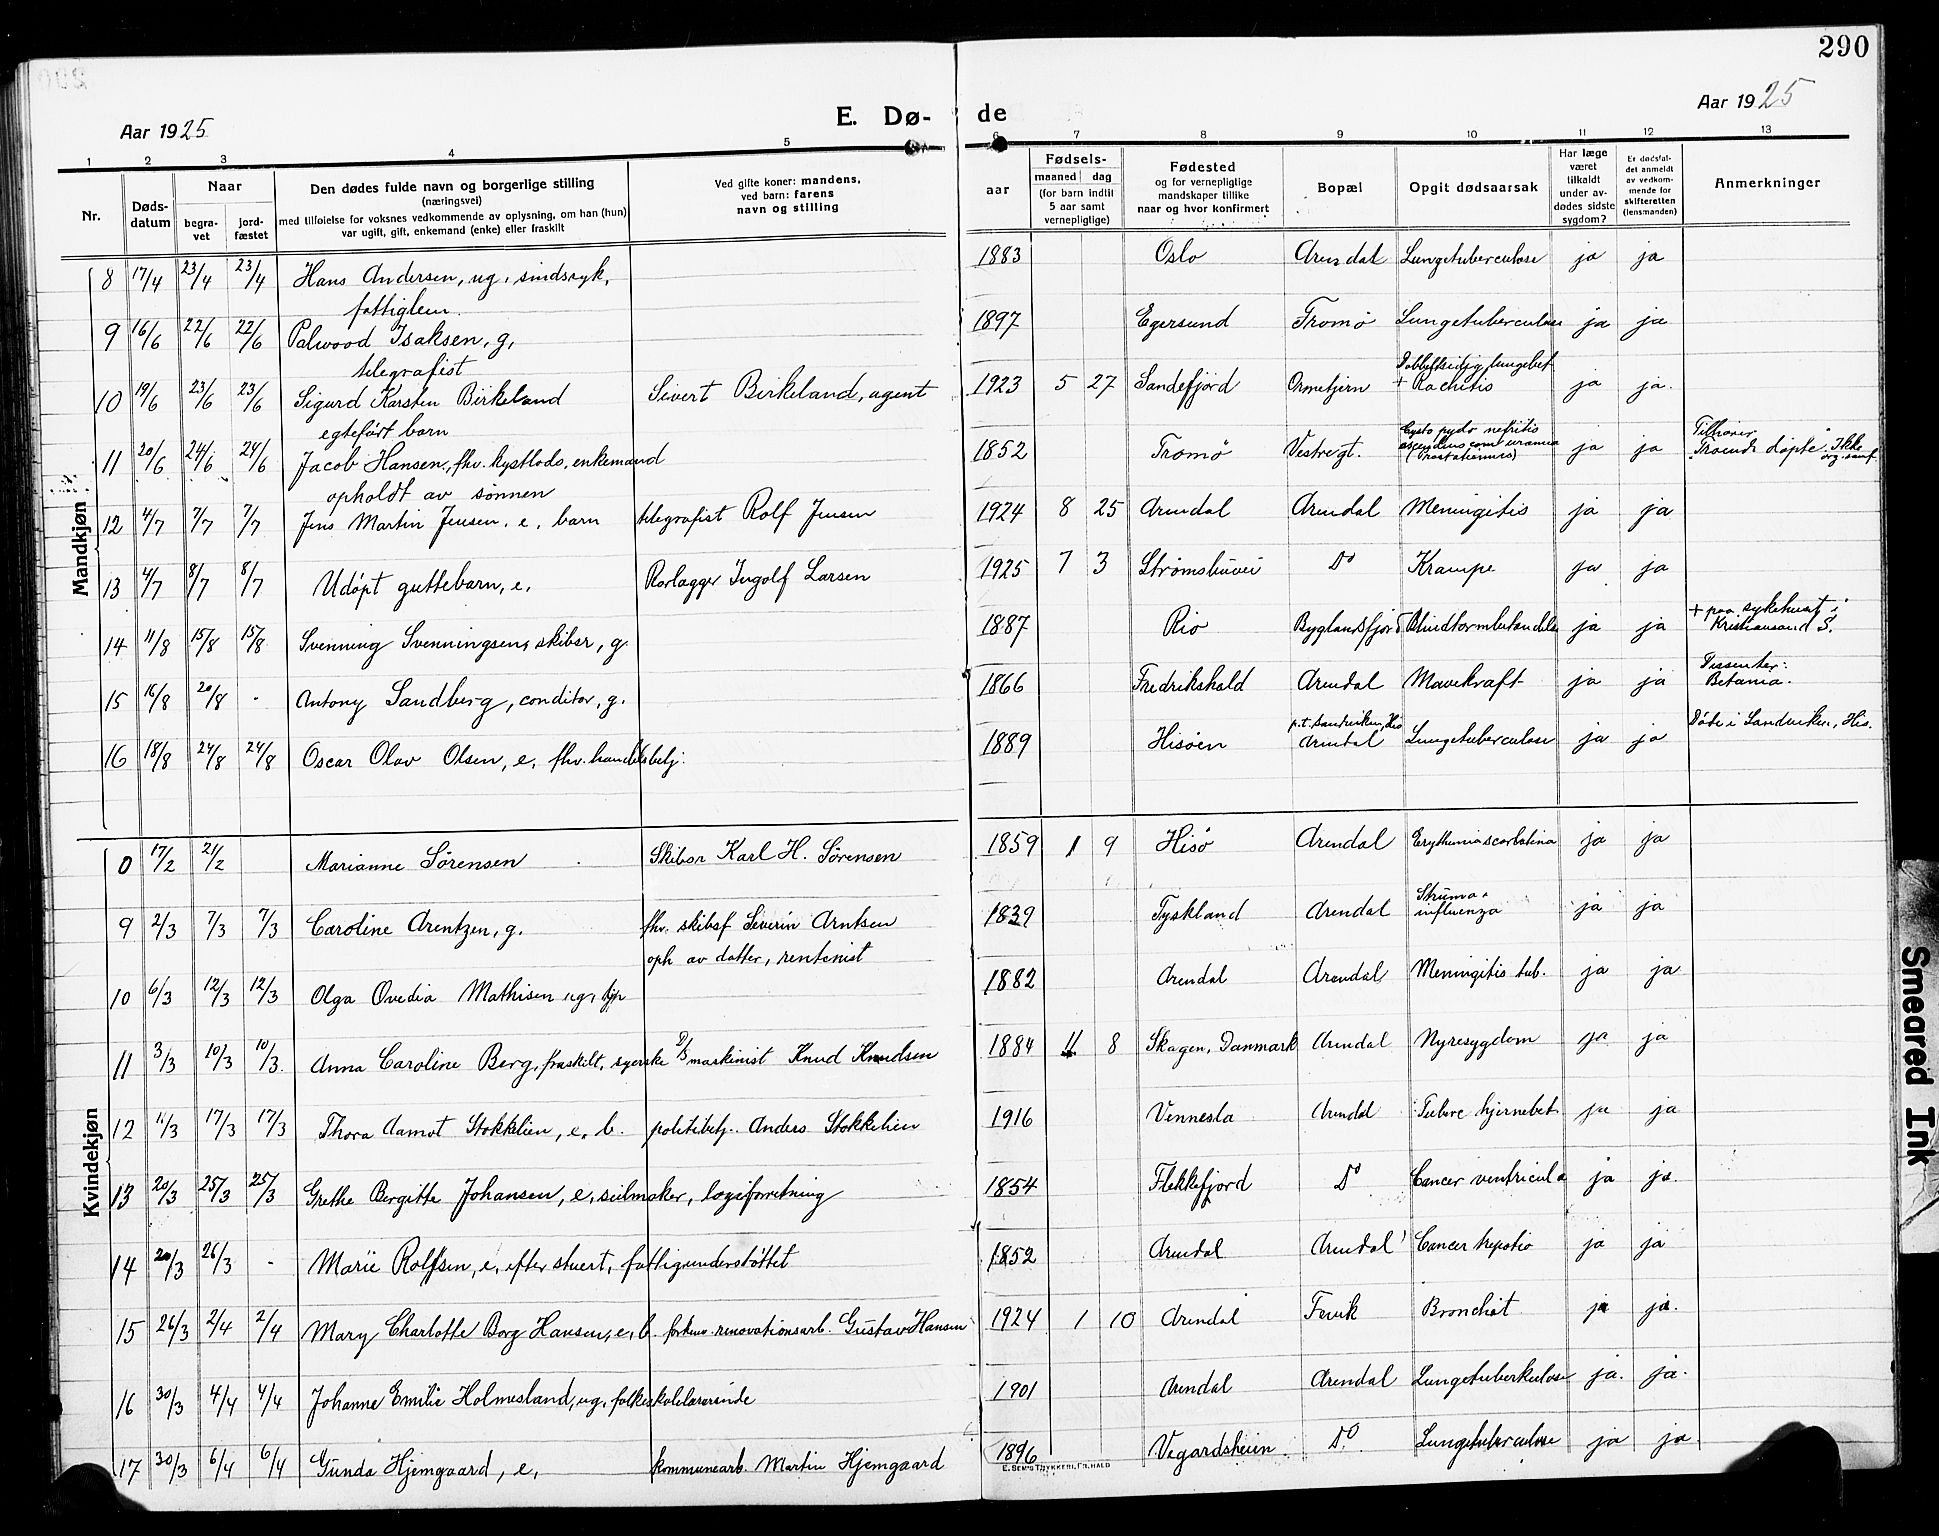 290
Aar 1925
E. Dø- de
Aar 1925
1 2 3 4 5 6 7 8 9 10 11 12 13
Nr.
Døds-
datum
Naar
begra-
vet
jord-
fæstet
Den dødes fulde navn og borgerlige stilling
(næringsvei)
med tilføielse for voksnes vedkommende av oplysning, om han (hun)
var ugift, gift, enkemand (enke) eller fraskilt
Ved gifte koner: mandens,
ved barn: farens
navn og stilling
Fødsels-
aar
maaned dag
(for barn indtil
5 aar samt
vernepligtige)
Fødested
og for vernepligtige
mandskaper tillike
naar og hvor konfirmert
Bopæl
Opgit dødsaarsak
Har læge
været
tilkaldt
under av-
dødes sidste
sygdom?
Er dødsfal-
det anmeldt
av vedkom-
mende for
skifteretten
(lensmanden)
Anmerkninger
Mandkjøn
8 17/4 23/4 23/4 Hans Andersen, ug, sindssyk, 1883 Oslo Arendal Lungetuberculose ja ja
fattiglem.
9 16/6 22/6 22/6 Palwood Isaksen, g, 1897 Egersund Tromø Lungetuberculose ja ja
telegrafist
10 19/6 23/6 23/6 Sigurd Karsten Birkeland Sivert Birkeland, agent 1923 5 27 Sandefjord Ormetjern Dobbeltsidig lungebet.
+ Rachitis ja ja.
egtefødt barn
11 20/6 24/6 24/6 Jacob Hansen, fhv. kystlods, enkemand 1852 Tromø Vestregt. Cysto pydo nefritis
ja ja Tilhører
døpte. Ikke
opholdt av sønnen
12 4/7 7/7 7/7 Jens Martin Jensen, e, barn telegrafist Rolf Jensen 1924 8 25 Arendal Arendal Meningitis ja ja
13 4/7 8/7 8/7 Udøpt guttebarn, e, Rørlægger Ingolf Larsen 1925 7 3 Strømsbuvei Do Krampe ja ja
14 11/8 15/8 15/8 Svenning Svenningsen, skibsr, g. 1887 Rio Byglandsfjord Blindtarmbetændelse ja ja + paa sykehuset i
Kristiansand S.
15 16/8 20/8 - Antony Sandberg, conditor, g. 1866 Fredrikshald Arendal Mavekræft ja ja Dissenter:
Betania.
16 18/8 24/8 24/8 Oscar Olav Olsen, e, fhv. handelsbetj. 1889 Hisøen p.t. Sandviken, His
Arendal Lungetuberculose ja ja Døde i Sandviken, His.
Kvindekjøn
0 17/2 21/2 Marianne Sørensen Skibsr Karl H. Sørensen 1859 1 9 Hisø Arendal ja ja
9 2/3 7/3 7/3 Caroline Arentzen, g. fhv. skibsf Severin Arntsen 1839 Tyskland Arendal Struma.
influenza ja ja
oph av datter, rentenist
10 6/3 12/3 12/3 Olga Ovedia Mathisen ug, 1882 Arendal Arendal Meningitis tub. ja ja
11 3/3 10/3 10/3. Anna Caroline Berg, fraskilt, syerske D/S maskinist Knud Knudsen 1884 11 8 Skagen, Danmark Arendal Nyresygdom ja ja
12 11/3 17/3 17/3 Thora Aamot Stokkelien, e, b. politibetj. Anders Stokkelien 1916 Vennesla Arendal Tuberc hjernebet. ja ja
13 20/3 25/3 25/3 Grethe Bergitte Johansen, e, seilmaker, logiforretning 1854 Flekkefjord Do Cancer ventricula ja ja.
14 20/3 26/3 - Marie Rolfsen, e, efter stuert, fattigunderstøttet 1852 Arendal Arendal Cancer hepatis ja ja
15 26/3 2/4 2/4 Mary Charlotte Borg Hansen, e, b. forhenv. renovationsarb. Gustav Hansen 1924 1 10 Arendal Fevik Bronchit ja ja.
16 30/3 4/4 4/4 Johanne Emilie Holmesland, ug, folkeskolelærerinde 1901 Arendal Arendal Lungetuberkulose ja. ja.
17 30/3 6/4 6/4 Gunda Hjemgaard, e, kommunearb. Martin Hjemgaard 1896 Vegardsheien Do. Lungetuberculose ja ja.
E. SEM'S TRYKKERI, FR.HALD
Smeared Ink